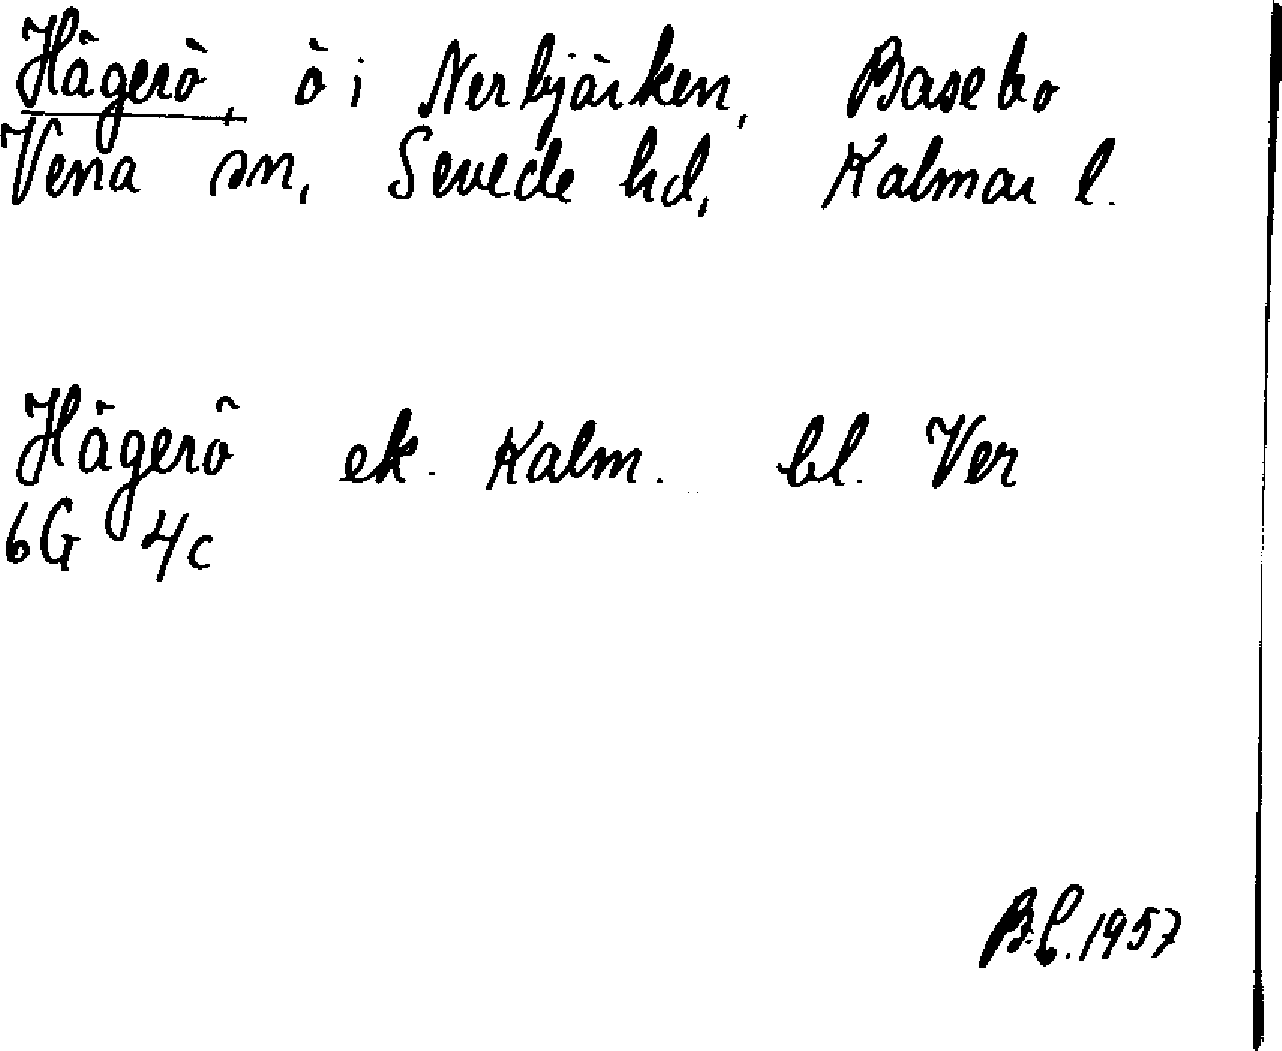 Hägerö, ö i Nerbjärken, Basebo
Vena sn, Sevede hd, Kalmar l.
Hägerö ek. Kalm. bl. Ver
6G 4c
1957